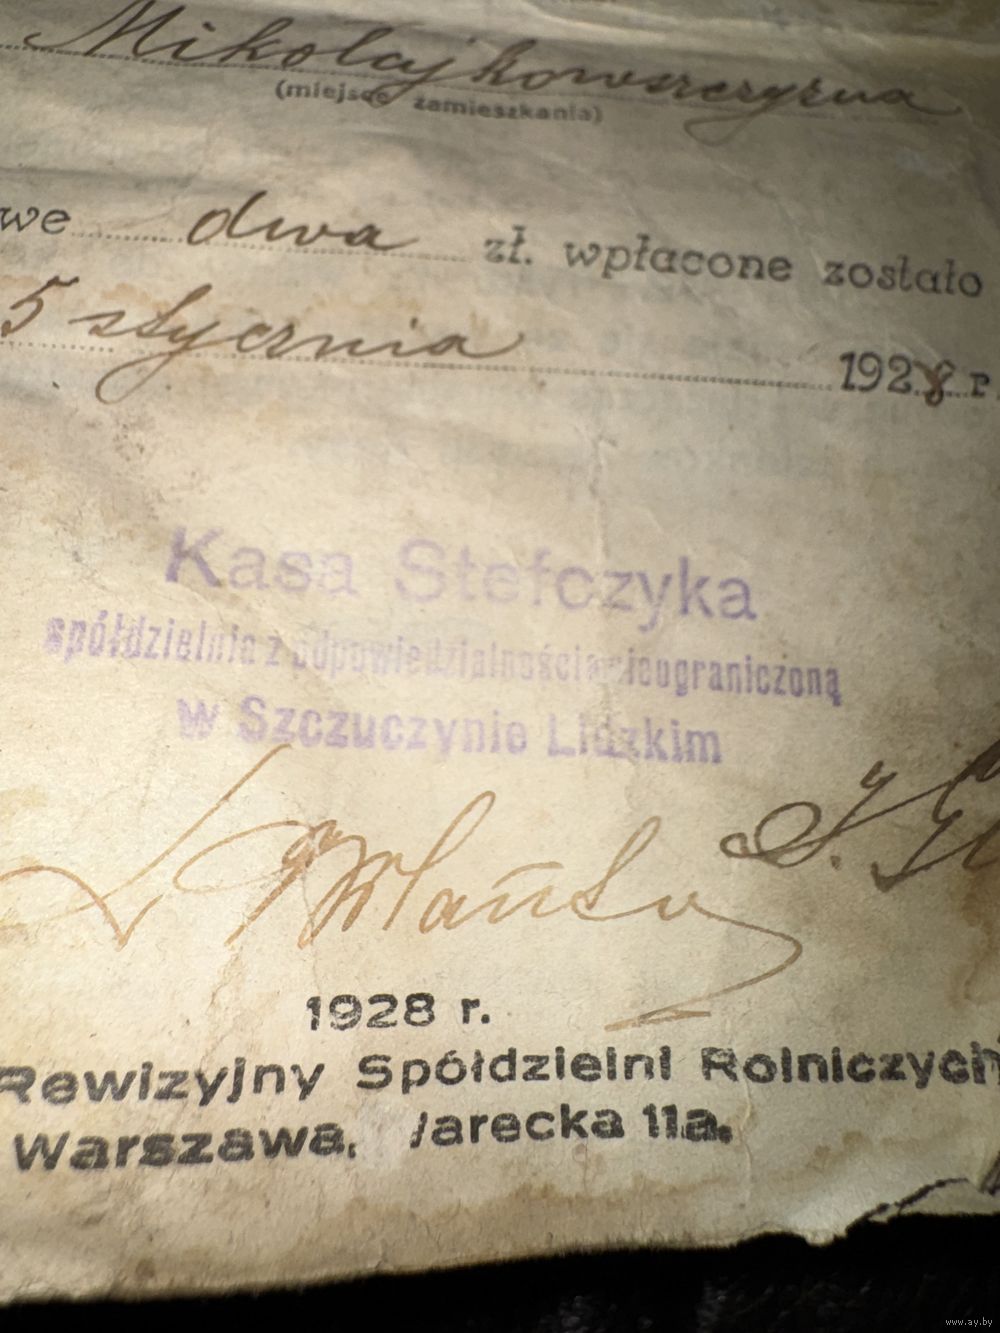 Mikołajkowszczyzna
(miejsce zamieszkania)
we dwa zł. wpłacone zostało
5 stycznia 1928 r.
Kasa Stefczyka
spółdzielnia z odpowiedzialnością nieograniczoną
w Szczuczynie Lidzkim
1928 r.
Rewizyjny Spółdzielni Rolniczych
Warszawa, Warecka 11a.
www.ay.by